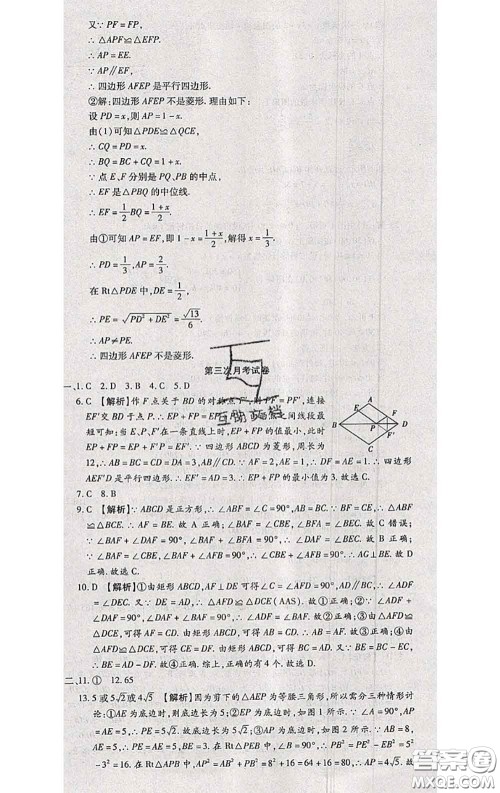 又∵ PF = FP,
∴ △APF≌△EFP.
∴ AP = EE.
∵ AP∥EF,
∴ 四边形 AFEP 是平行四边形.
②解: 四边形 AFEP 不是菱形. 理由如下:
设 PD = x, 则 AP = 1 - x.
由 (1) 可知 △PDE≌△QCE,
∴ CQ = PD = x.
∴ BQ = BC + CQ = 1 + x.
∵ 点 E、F 分别是 PQ、PB 的中点,
∴ EF 是 △PBQ 的中位线.
∴ EF = 1/2 BQ = (1+x)/2.
由①可知 AP = EF, 即 1 - x = (1+x)/2, 解得 x = 1/3.
∴ PD = 1/3, AP = 2/3.
在 Rt△PDE 中, DE = 1/2,
∴ PE = √(PD² + DE²) = √13/6.
∴ AP ≠ PE.
∴ 四边形 AFEP 不是菱形.
第三次月考试卷
一、1. C 2. D 3. B 4. C 5. D
6. C 【解析】作 F 点关于 BD 的对称点 F′, 则 PF = PF′, 连接
EF′交 BD 于点 P. ∴ EP + FP = EP + F′P. 由两点之间线段最
短可知: 当 E、P、F′在一条直线上时, EP + FP 的值最小, 此时
EP + FP = EP + F′P = EF′. ∵ 四边形 ABCD 为菱形, 周长为
12, ∴ AB = BC = CD = DA = 3. ∵ AF = 2, AE = 1, ∴ DF = AE = 1. ∴ 四边形
AEF′D 是平行四边形. ∴ EF′ = AD = 3. ∴ EP + FP 的最小值为 3. 故选 C.
7. C 8. B
9. C 【解析】∵ ABCD 是正方形, ∴ ∠ABF = ∠C = 90°, AB = BC. ∵ BF = CE, ∴ △ABF
≌△BCE. ∴ AF = BE. 故 A 正确; ∠BAF = ∠CBE, ∠BFA = ∠BEC. 故 C 错误;
∵ ∠BAF + ∠DAF = 90°, ∠CBE + ∠BEC = 90°, ∴ ∠DAF = ∠BEC. 故 B 正确;
∵ ∠BAF = ∠CBE, ∠BAF + ∠AFB = 90°, ∴ ∠CBE + ∠AFB = 90°. ∴ AG⊥BE. 故 D
正确. 故选 C.
10. D 【解析】①由矩形 ABCD, AF⊥DE 可得∠C = ∠AFD = 90°, AD∥BC, ∴ ∠ADF
= ∠DEC. 又∵ DE = AD, ∴ △AFD≌△DCE (AAS). 故①正确; ②∵ ∠ADF +
∠FDC = 90°, ∠DAF + ∠ADF = 90°, ∴ ∠FDC = ∠DAF. 故②正确; ③由 △AFD≌
△DCE, 可得 AF = CD. 由矩形 ABCD, 可得 AB = CD, ∴ AB = AF. 故③正确; ④由
△AFD≌△DCE 可得 BE = BC - EC = AD - DF. 故④正确. 综上, 正确的有 4 个. 故选 D.
二、11. ① 12. 65
13. 5 或 5√2 或 4√5 【解析】因为剪下的 △AEP 为等腰三角形, 所以需分三种情形讨
论: ①AE 为底边时, 则底边长为 5; ②当 PE 为底边时, 如图 1 所示. ∵ ∠A = 90°, AP
= AE = 5, ∴ PE = 5√2. 故底边长为 5√2; ③当 AP 为底边时, 如图 2 所示. ∵ AB = 8,
AE = 5, ∴ PE = AE = 5, BE = 3. 在 Rt△PEB 中, ∠B = 90°, ∴ PB² = PE² - EB² = 5²
- 3² = 16. 在 Rt△PBA 中, AP² = AB² + PB² = 8² + 16 = 64 + 16 = 80, ∴ AP = 4√5. 故
A
F
E
D
B
P
F′
C
互助文档
答案圈
MXQE.COM